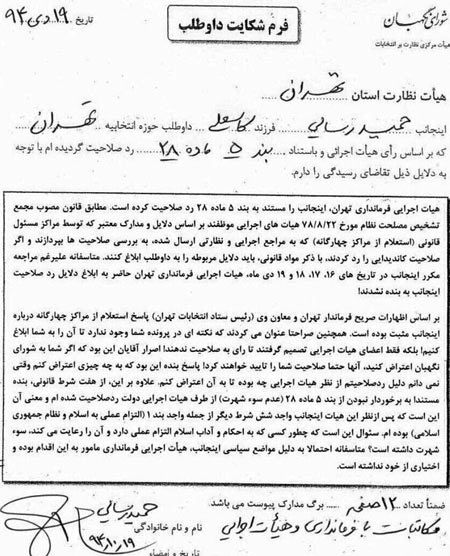 شورای نگهبان
هیأت مرکزی نظارت بر انتخابات
فرم شکایت داوطلب
تاریخ ۱۹ دی ۹۴
هیأت نظارت استان تهران
اینجانب حمید رسایی فرزند داوطلب حوزه انتخابیه تهران
که بر اساس رأی هیأت اجرائی و باستناد بند ۵ ماده ۲۸ رد صلاحیت گردیده ام با توجه
به دلایل ذیل تقاضای رسیدگی را دارم.
هیات اجرایی فرمانداری تهران، اینجانب را مستند به بند ۵ ماده ۲۸ رد صلاحیت کرده است. مطابق قانون مصوب مجمع
تشخیص مصلحت نظام مورخ ۷۸/۸/۲۲ هیات های اجرایی موظفند بر اساس دلایل و مدارک معتبر که توسط مراکز مسئول
قانونی (استعلام از مراکز چهارگانه) که به مراجع اجرایی و نظارتی ارسال شده، به بررسی صلاحیت ها بپردازند و اگر
صلاحیت کاندیدایی را رد کردند، با ذکر مواد قانونی، باید دلایل مربوطه را به داوطلب ابلاغ کنند. متاسفانه علیرغم مراجعه
مکرر اینجانب در تاریخ های ۱۶، ۱۷، ۱۸ و ۱۹ دی ماه، هیات اجرایی فرمانداری تهران حاضر به ابلاغ دلایل رد صلاحیت
اینجانب به بنده نشدند!
بر اساس اظهارات صریح فرماندار تهران و معاون وی (رئیس ستاد انتخابات تهران) پاسخ استعلام از مراکز چهارگانه درباره
اینجانب مثبت بوده است. همچنین صراحتا عنوان می کردند که نکته ای در پرونده شما وجود ندارد تا آن را به شما ابلاغ
کنیم! بلکه فقط اعضای هیات اجرایی تصمیم گرفتند تا رای به صلاحیت ندهند! اصرار آقایان این بود که اگر شما به شورای
نگهبان اعتراض کنید، آنها حتما صلاحیت شما را تایید خواهند کرد! پاسخ بنده این بود که به چه چیزی اعتراض کنم وقتی
نمی دانم دلیل ردصلاحیتم از نظر هیات اجرایی چه بوده تا به آن اعتراض کنم. علاوه بر این، از هفت شرط قانونی، بنده
مستندا به برخوردار نبودن از بند ۵ ماده ۲۸ (عدم سوء شهرت) از طرف هیات اجرایی دولت ردصلاحیت شده ام و معنی آن
این است که پس ازنظر این هیات اینجانب واجد شش شرط دیگر از جمله واجد بند ۱ (التزام عملی به اسلام و نظام جمهوری
اسلامی) بوده ام. سئوال این است که چطور کسی که به احکام و آداب اسلام التزام عملی دارد و آن را رعایت می کند، سوء
شهرت داشته است؟ متاسفانه احتمالا به دلیل مواضع سیاسی اینجانب، هیأت اجرایی فرمانداری مامور به این اقدام بوده و
اختیاری از خود نداشته است.
ضمناً تعداد ۱۲ صفحه برگ مدارک پیوست می باشد.
مکاتبات با فرمانداری و هیأت اجرایی
حمید رسایی
نام و نام خانوادگی
۹۴،۱۰،۱۹
تاریخ و امضاء